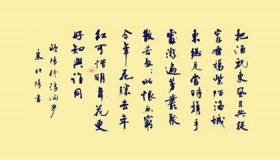 把酒祝東風且共從
容垂楊紫陌洛城
東總是當時携手
處游遍芳叢聚
散苦匆匆此恨無窮
今年花勝去年
紅可惜明年花更
好知與誰同